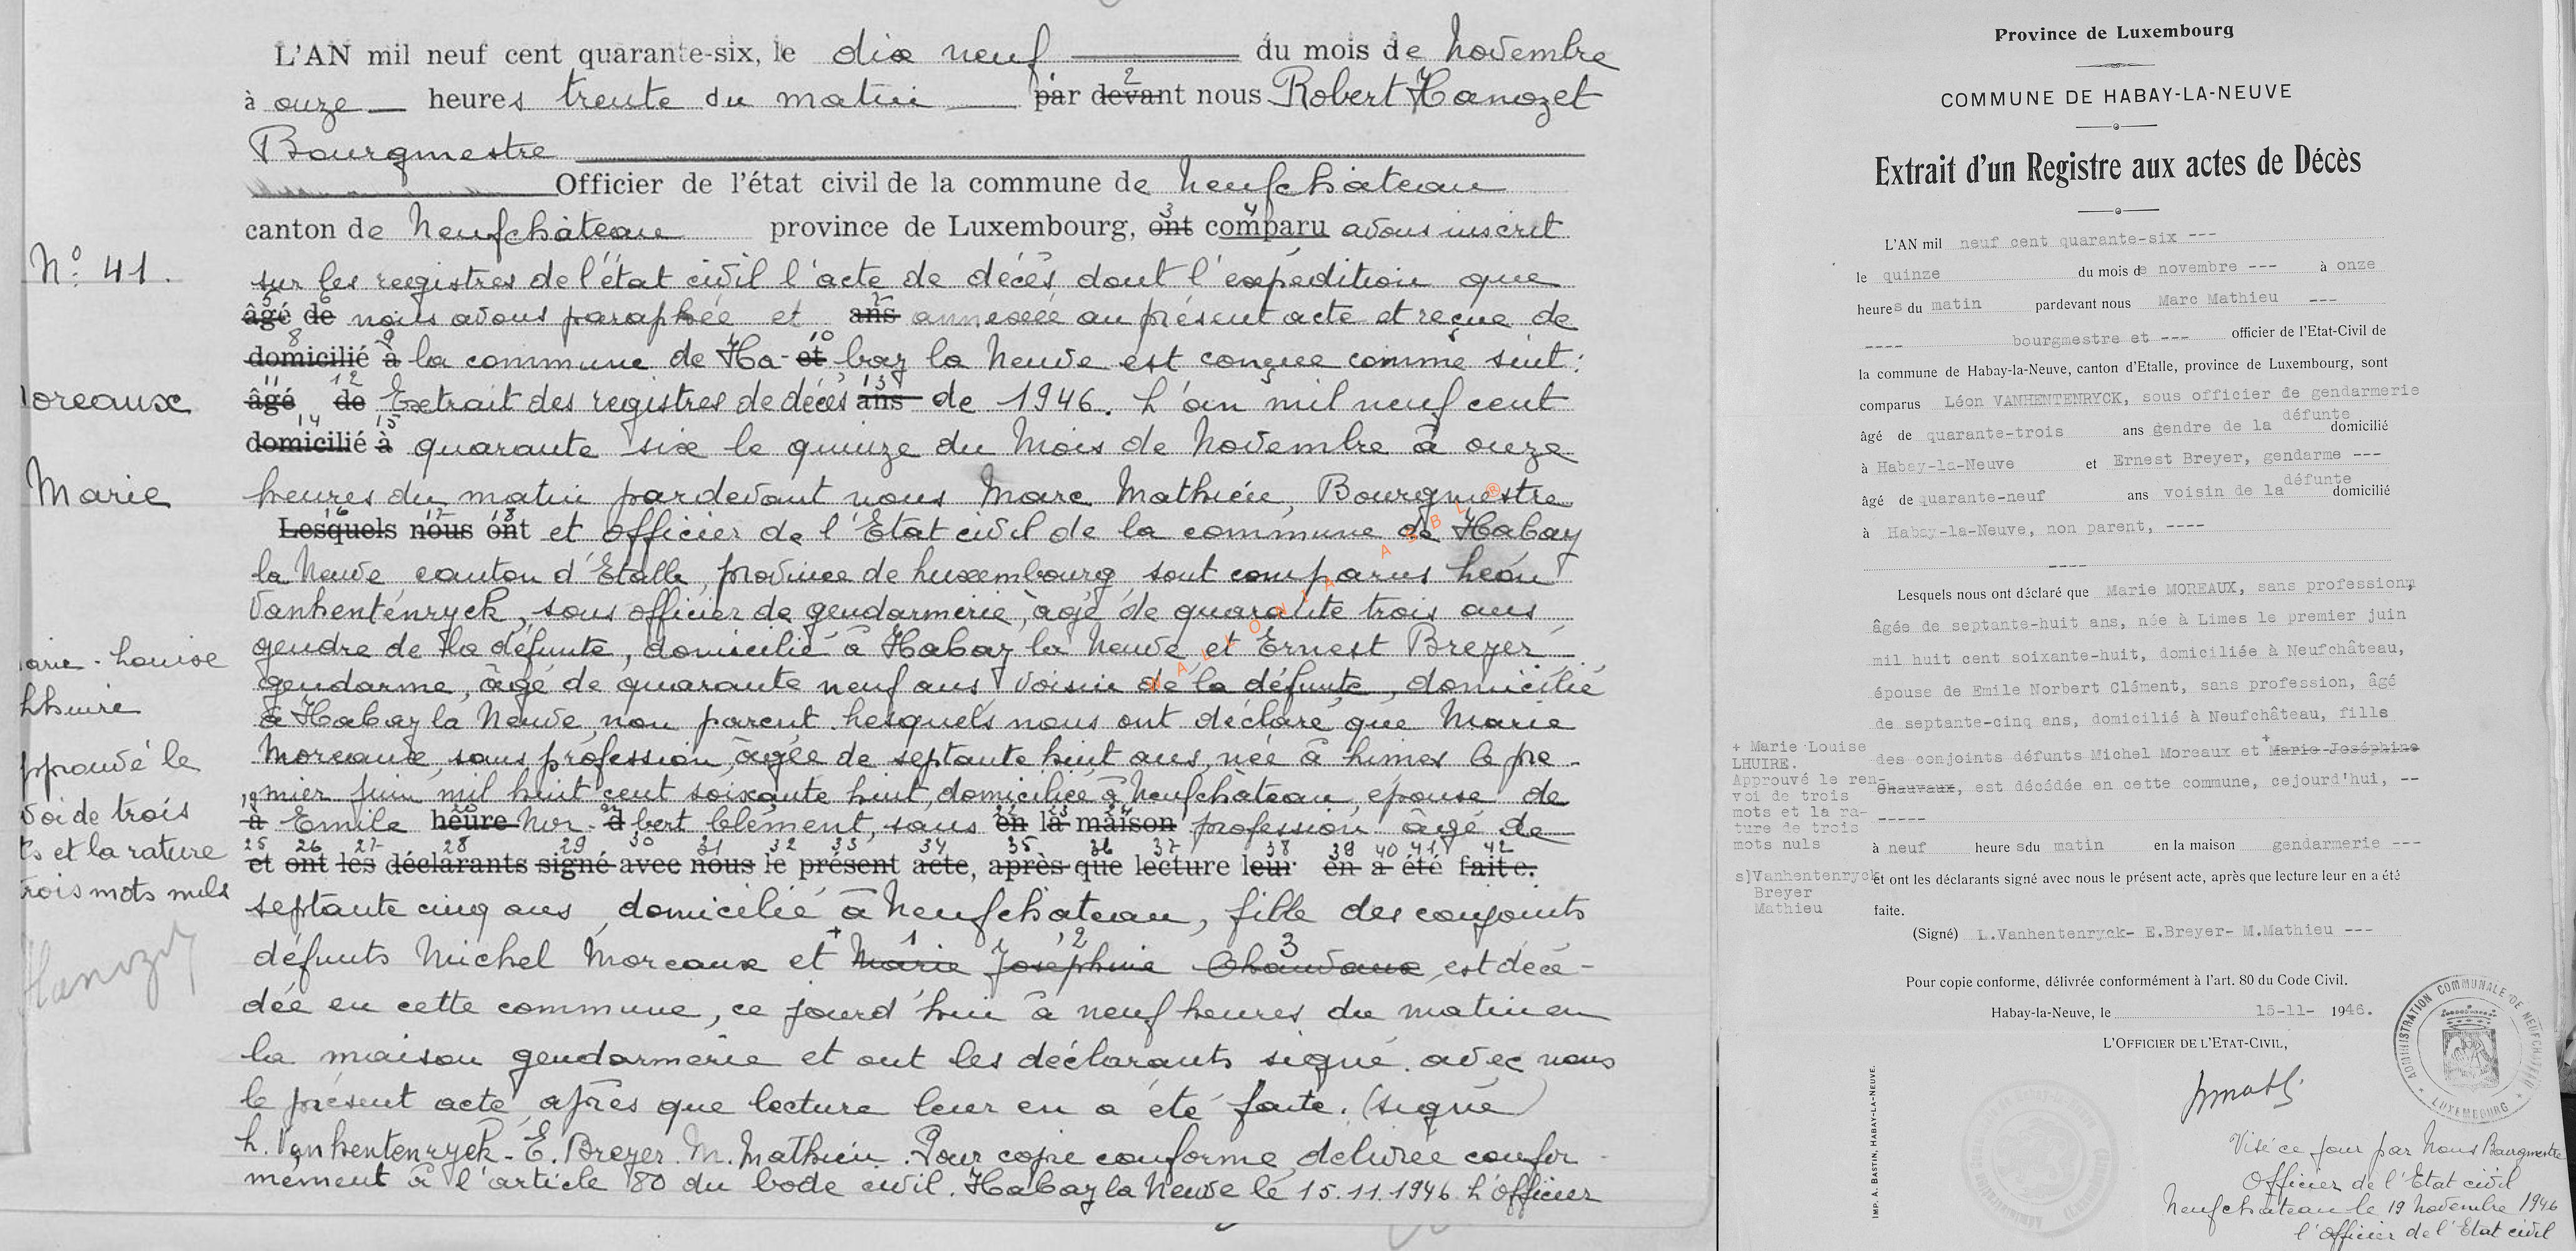 L'AN mil neuf cent quarante-six, le dix neuf du mois de Novembre
à onze heures trente du matin par devant nous Robert Hanozet
2
Bourgmestre
Officier de l'état civil de la commune de Neufchâteau
canton de Neufchâteau province de Luxembourg, ont comparu avons inscrit
3 4
N° 41.
sur les registres de l'état civil l'acte de décès dont l'expédition que
5 6
âgé de nous avons paraphée et ans annexée au présent acte et reçue de
8 9 10
domicilié à la commune de Ha- et bay la Neuve est conçue comme suit:
11 12 13
oreaux
âgé de Extrait des registres de décès ans de 1946. L'an mil neuf cent
14 15
domicilié à quarante six le quinze du Mois de Novembre à onze
Marie
heures du matin pardevant nous Marc Mathieu, Bourgmestre
16 17 18
Lesquels nous ont et officier de l'Etat civil de la commune de Habay
la Neuve canton d'Etalle, province de Luxembourg, sont comparus Léon
Vanhentenryck, sous officier de gendarmerie, âgé de quarante trois ans
arie-Louise
gendre de la défunte, domicilié à Habay la Neuve et Ernest Breyer
gendarme, âgé de quarante neuf ans voisin de la défunte, domicilié
Lhuire
à Habay la Neuve, non parent. Lesquels nous ont déclaré que Marie
pprouvé le
Moreaux, sans profession, âgée de septante huit ans, née à Limes le pre-
mier juin mil huit cent soixante huit, domiciliée à Neufchâteau, épouse de
voi de trois
à Emile heure Nor- d bert Clément, sans en la maison profession âgé de
ts et la rature
25 26 27 28 29 30 31 32 33 34 35 36 37 38 39 40 41 42
et ont les déclarants signé avec nous le présent acte, après que lecture leur en a été faite.
rois mots nuls
septante cinq ans, domicilié à Neufchâteau, fille des conjoints
+ 1 2 3
défunts Michel Moreaux et Marie Joséphine Chauvaux, est décé-
Hanozet
dée en cette commune, ce jourd'hui à neuf heures du matin en
la maison gendarmerie et ont les déclarants signé avec nous
le présent acte, après que lecture leur en a été faite. (signé)
L. Vanhentenryck - E. Breyer. M. Mathieu. Pour copie conforme, délivrée confor-
mément à l'article 80 du Code civil. Habay la Neuve le 15.11.1946. L'officier
WALLONIA ASBL ®
Province de Luxembourg
COMMUNE DE HABAY-LA-NEUVE
Extrait d'un Registre aux actes de Décès
L'AN mil neuf cent quarante-six ---
le quinze du mois de novembre --- à onze
heures du matin pardevant nous Marc Mathieu ---
---- bourgmestre et --- officier de l'Etat-Civil de
la commune de Habay-la-Neuve, canton d'Etalle, province de Luxembourg, sont
comparus Léon VANHENTENRYCK, sous officier de gendarmerie
défunte
âgé de quarante-trois ans gendre de la domicilié
à Habay-la-Neuve et Ernest Breyer, gendarme ---
défunte
âgé de quarante-neuf ans voisin de la domicilié
à Habay-la-Neuve, non parent, ----
----
Lesquels nous ont déclaré que Marie MOREAUX, sans profession,
âgée de septante-huit ans, née à Limes le premier juin
mil huit cent soixante-huit, domiciliée à Neufchâteau,
épouse de Emile Norbert Clément, sans profession, âgé
de septante-cinq ans, domicilié à Neufchâteau, fille
+
des conjoints défunts Michel Moreaux et Marie-Joséphine
Chauvaux, est décédée en cette commune, cejourd'hui, --
-----
+ Marie Louise
LHUIRE.
Approuvé le ren-
voi de trois
mots et la ra-
ture de trois
mots nuls
s)Vanhentenryck
Breyer
Mathieu
à neuf heures du matin en la maison gendarmerie ---
et ont les déclarants signé avec nous le présent acte, après que lecture leur en a été
faite.
(Signé) L.Vanhentenryck- E.Breyer- M.Mathieu ---
Pour copie conforme, délivrée conformément à l'art. 80 du Code Civil.
Habay-la-Neuve, le 15-11- 1946.
L'OFFICIER DE L'ETAT-CIVIL,
ADMINISTRATION COMMUNALE DE NEUFCHATEAU
LUXEMBOURG
IMP. A. BASTIN, HABAY-LA-NEUVE.
Visé ce jour par Nous Bourgmestre
Officier de l'Etat civil
Neufchâteau le 19 Novembre 1946
l'Officier de l'Etat civil